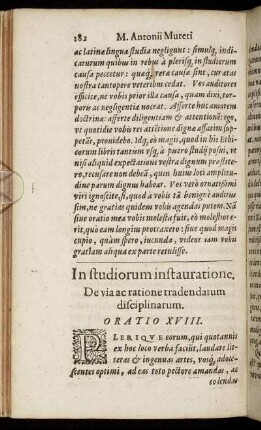 182 M. Antonii Mureti
ac latinæ linguæ studia negligunt: simulq, indi-
caturum quibus in rebus à plerisq, in studiorum
causa peccetur: quæq, vera causa sint, cur ætas
nostra tantopere veteribus cedat. Vos auditores
efficite, ne vobis prior illa causa, quam dixi, tor-
por ac negligentia noceat. Afferte huc amorem
doctrinæ: afferte diligentiam & attentionē: ego,
vt quotidie vobis res attētione dignæ affatim sup-
petāt, prouidebo. Idq, eò magis, quod in his Ethi-
corum libris tantum vsq, à puero studij posui, vt
nisi aliquid expectatione vestra dignum præstite-
ro, recusare non debeā, quin huius loci amplitu-
dine parum dignus habear. Vos verò ornatissimi
viri ignoscite, si, quod à vobis tā benignè auditus
sim, ne gratias quidem vobis agendas putem. Nā
siue oratio mea vobis molesta fuit, eò molestior e-
rit, quò eam longius protraxero: siue quod magis
cupio, quàm spero, iucunda, videor iam vobis
gratiam aliqua ex parte retulisse.
In studiorum instauratione.
De via ac ratione tradendarum
disciplinarum.
ORATIO XVIII.
PLERIQVE eorum, qui quotannis
ex hoc loco verba faciūt, laudare lit-
teras & ingenuas artes, vosq, adole-
scentes optimi, ad eas toto pectore amandas, ac
colendas